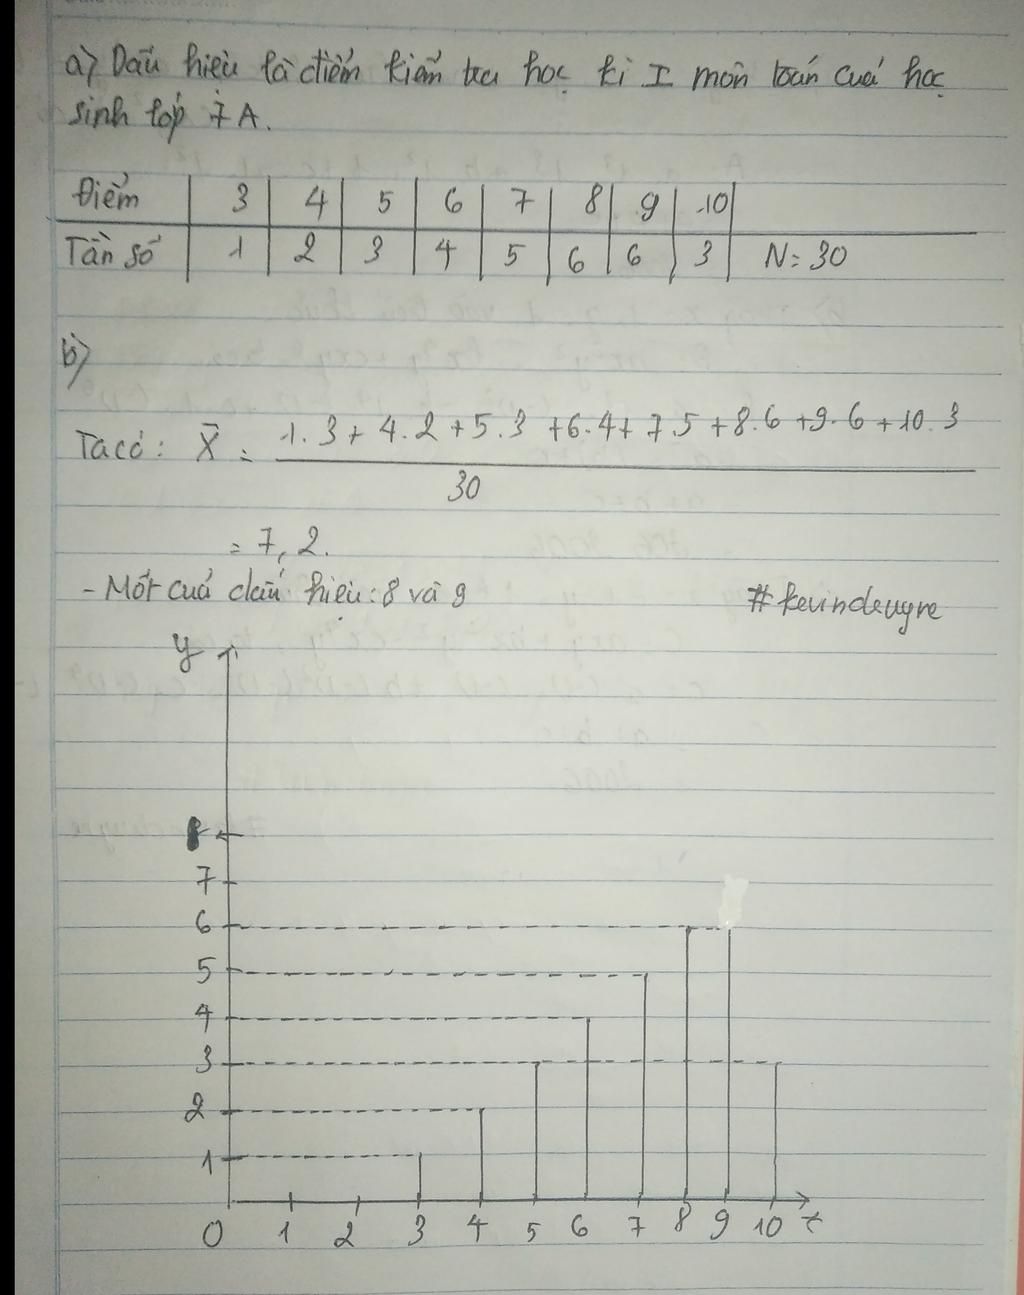 a) Dấu hiệu là điểm kiểm tra học kì I môn toán của học
sinh lớp 7A.
Điểm 3 4 5 6 7 8 9 10
Tần số 1 2 3 4 5 6 6 3 N = 30
b)
Ta có: X̄ = 1.3 + 4.2 + 5.3 + 6.4 + 7.5 + 8.6 + 9.6 + 10.3
30
= 7,2.
- Mốt của dấu hiệu: 8 và 9
y
7
6
5
4
3
2
1
0 1 2 3 4 5 6 7 8 9 10